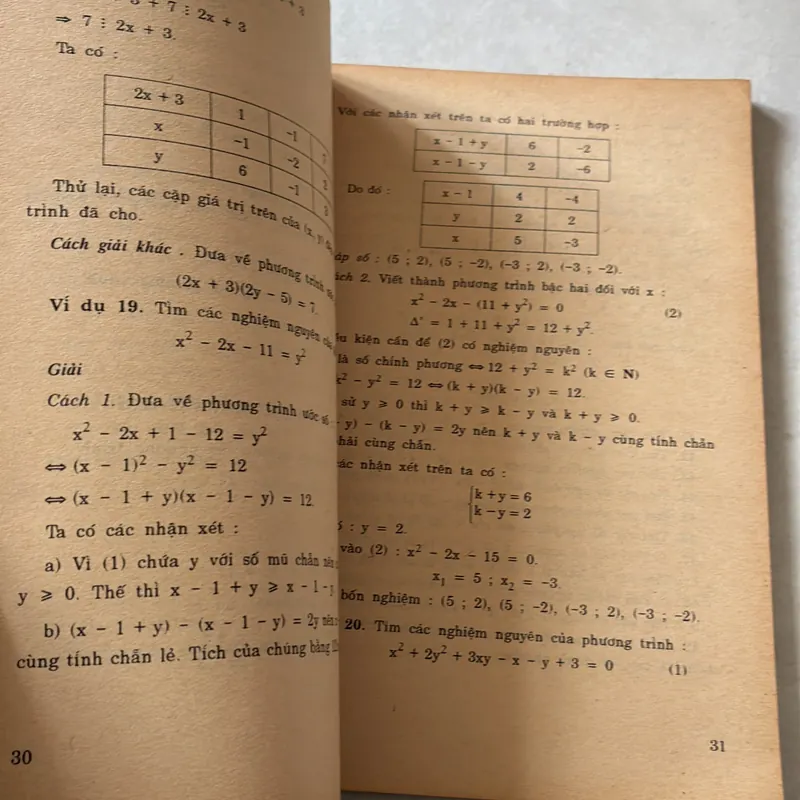 + 7 ⋮ 2x + 3
⇒ 7 ⋮ 2x + 3.
Ta có :
2x + 3 1 -1 7
x -1 -2 2
y 6 -1 3
Thử lại, các cặp giá trị trên của (x, y)
trình đã cho.
Cách giải khác . Đưa về phương trình
(2x + 3)(2y - 5) = 7.
Ví dụ 19. Tìm các nghiệm nguyên của
x² - 2x - 11 = y²
Giải
Cách 1. Đưa về phương trình ước số
x² - 2x + 1 - 12 = y²
⇔ (x - 1)² - y² = 12
⇔ (x - 1 + y)(x - 1 - y) = 12.
Ta có các nhận xét :
a) Vì (1) chứa y với số mũ chẵn nên
y ⩾ 0. Thế thì x - 1 + y ⩾ x - 1 -
b) (x - 1 + y) - (x - 1 - y) = 2y nên
cùng tính chẵn lẻ. Tích của chúng bằng
30
Với các nhận xét trên ta có hai trường hợp :
x - 1 + y 6 -2
x - 1 - y 2 -6
Do đó :
x - 1 4 -4
y 2 2
x 5 -3
áp số : (5 ; 2), (5 ; -2), (-3 ; 2), (-3 ; -2).
ách 2. Viết thành phương trình bậc hai đối với x :
x² - 2x - (11 + y²) = 0 (2)
Δ' = 1 + 11 + y² = 12 + y².
u kiện cần để (2) có nghiệm nguyên :
là số chính phương ⇔ 12 + y² = k² (k ∈ N)
k² - y² = 12 ⇔ (k + y)(k - y) = 12.
sử y ⩾ 0 thì k + y ⩾ k - y và k + y ⩾ 0.
y) - (k - y) = 2y nên k + y và k - y cùng tính chẵn
hải cùng chẵn.
ác nhận xét trên ta có :
k + y = 6
k - y = 2
: y = 2.
vào (2) : x² - 2x - 15 = 0.
x₁ = 5 ; x₂ = -3.
bốn nghiệm : (5 ; 2), (5 ; -2), (-3 ; 2), (-3 ; -2).
20. Tìm các nghiệm nguyên của phương trình :
x² + 2y² + 3xy - x - y + 3 = 0 (1)
31